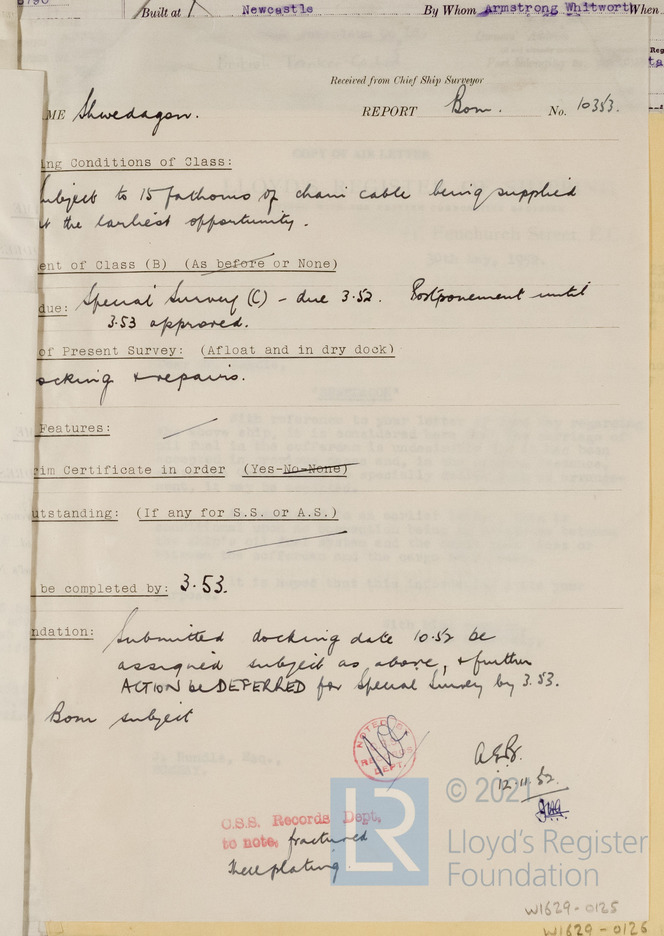 Built at Newcastle By Whom Armstrong Whitworth When
Received from Chief Ship Surveyor
ME Shwedagon. REPORT Bom. No. 10353.
ing Conditions of Class:
Subject to 15 fathoms of chain cable being supplied
at the earliest opportunity.
ent of Class (B) (As before or None)
due: Special Survey (C) - due 3.52. Postponement until
3.53 approved.
of Present Survey: (Afloat and in dry dock)
ocking & repairs.
Features:
rim Certificate in order (Yes-No-None)
utstanding: (If any for S.S. or A.S.)
be completed by: 3.53.
ndation: Submitted docking date 10.52 be
assigned subject as above, & further
ACTION be DEFERRED for Special Survey by 3.53.
Bom subject
NOTED BY
RECORDS
DEPT.
12.11.52.
C.S.S. Records Dept,
to note, fractured
shell plating.
J. Hendie, Esq.,
BOMBAY.
LR
© 2021
Lloyd's Register
Foundation
W1629-0125
W1629-0126